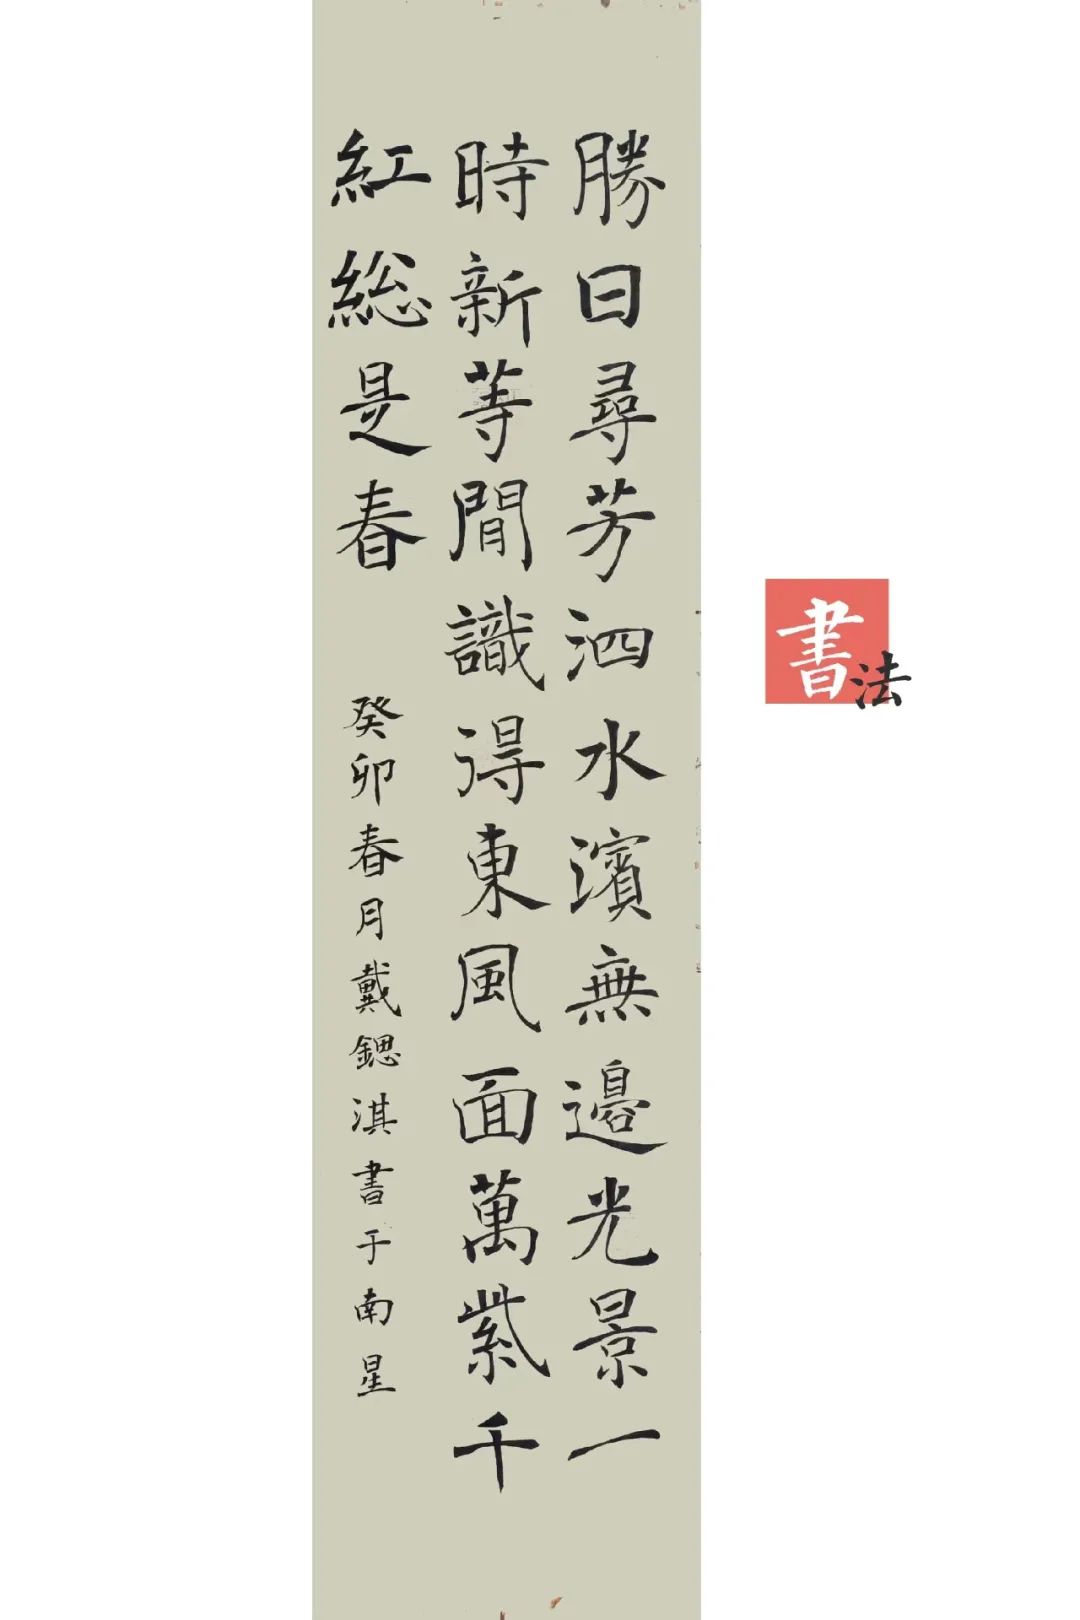 勝日尋芳泗水濱無邊光景一
時新等閒識得東風面萬紫千
紅総是春
癸卯春月戴鍶淇書于南星
書法